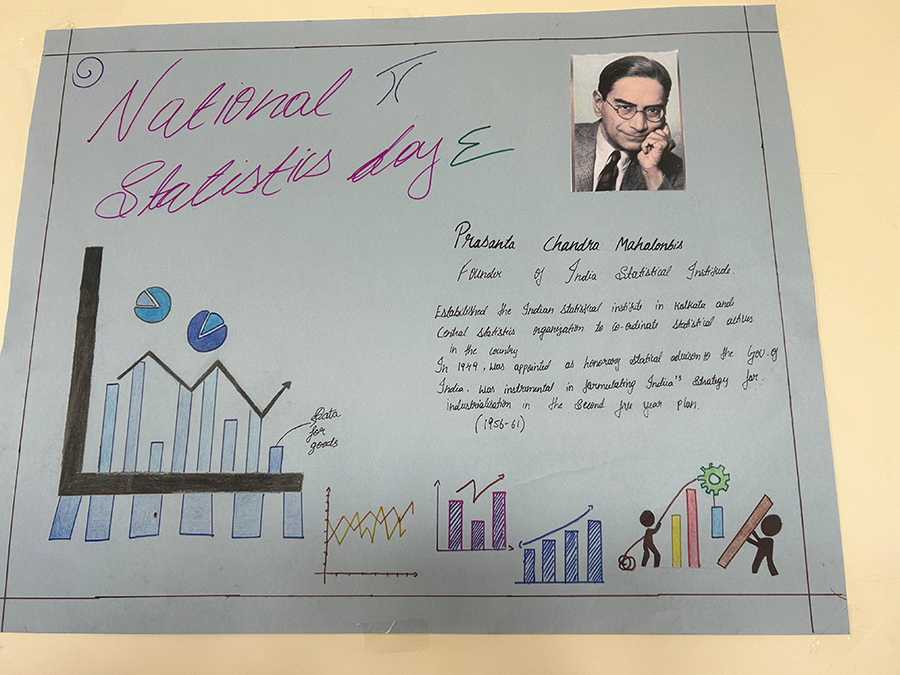 National π
Statistics day Σ
Prasanta Chandra Mahalonbis
Founder of India Statistical Institude.
Established the Indian statistical institute in Kolkata and
Central statistics organization to co-ordinate statistical
in the country
In 1949, was appointed as honorary to the Gov. of
India. was instrumental in formulating India's strategy for.
industrialisation in the second five year plan.
(1956-61)
Data
for
goods